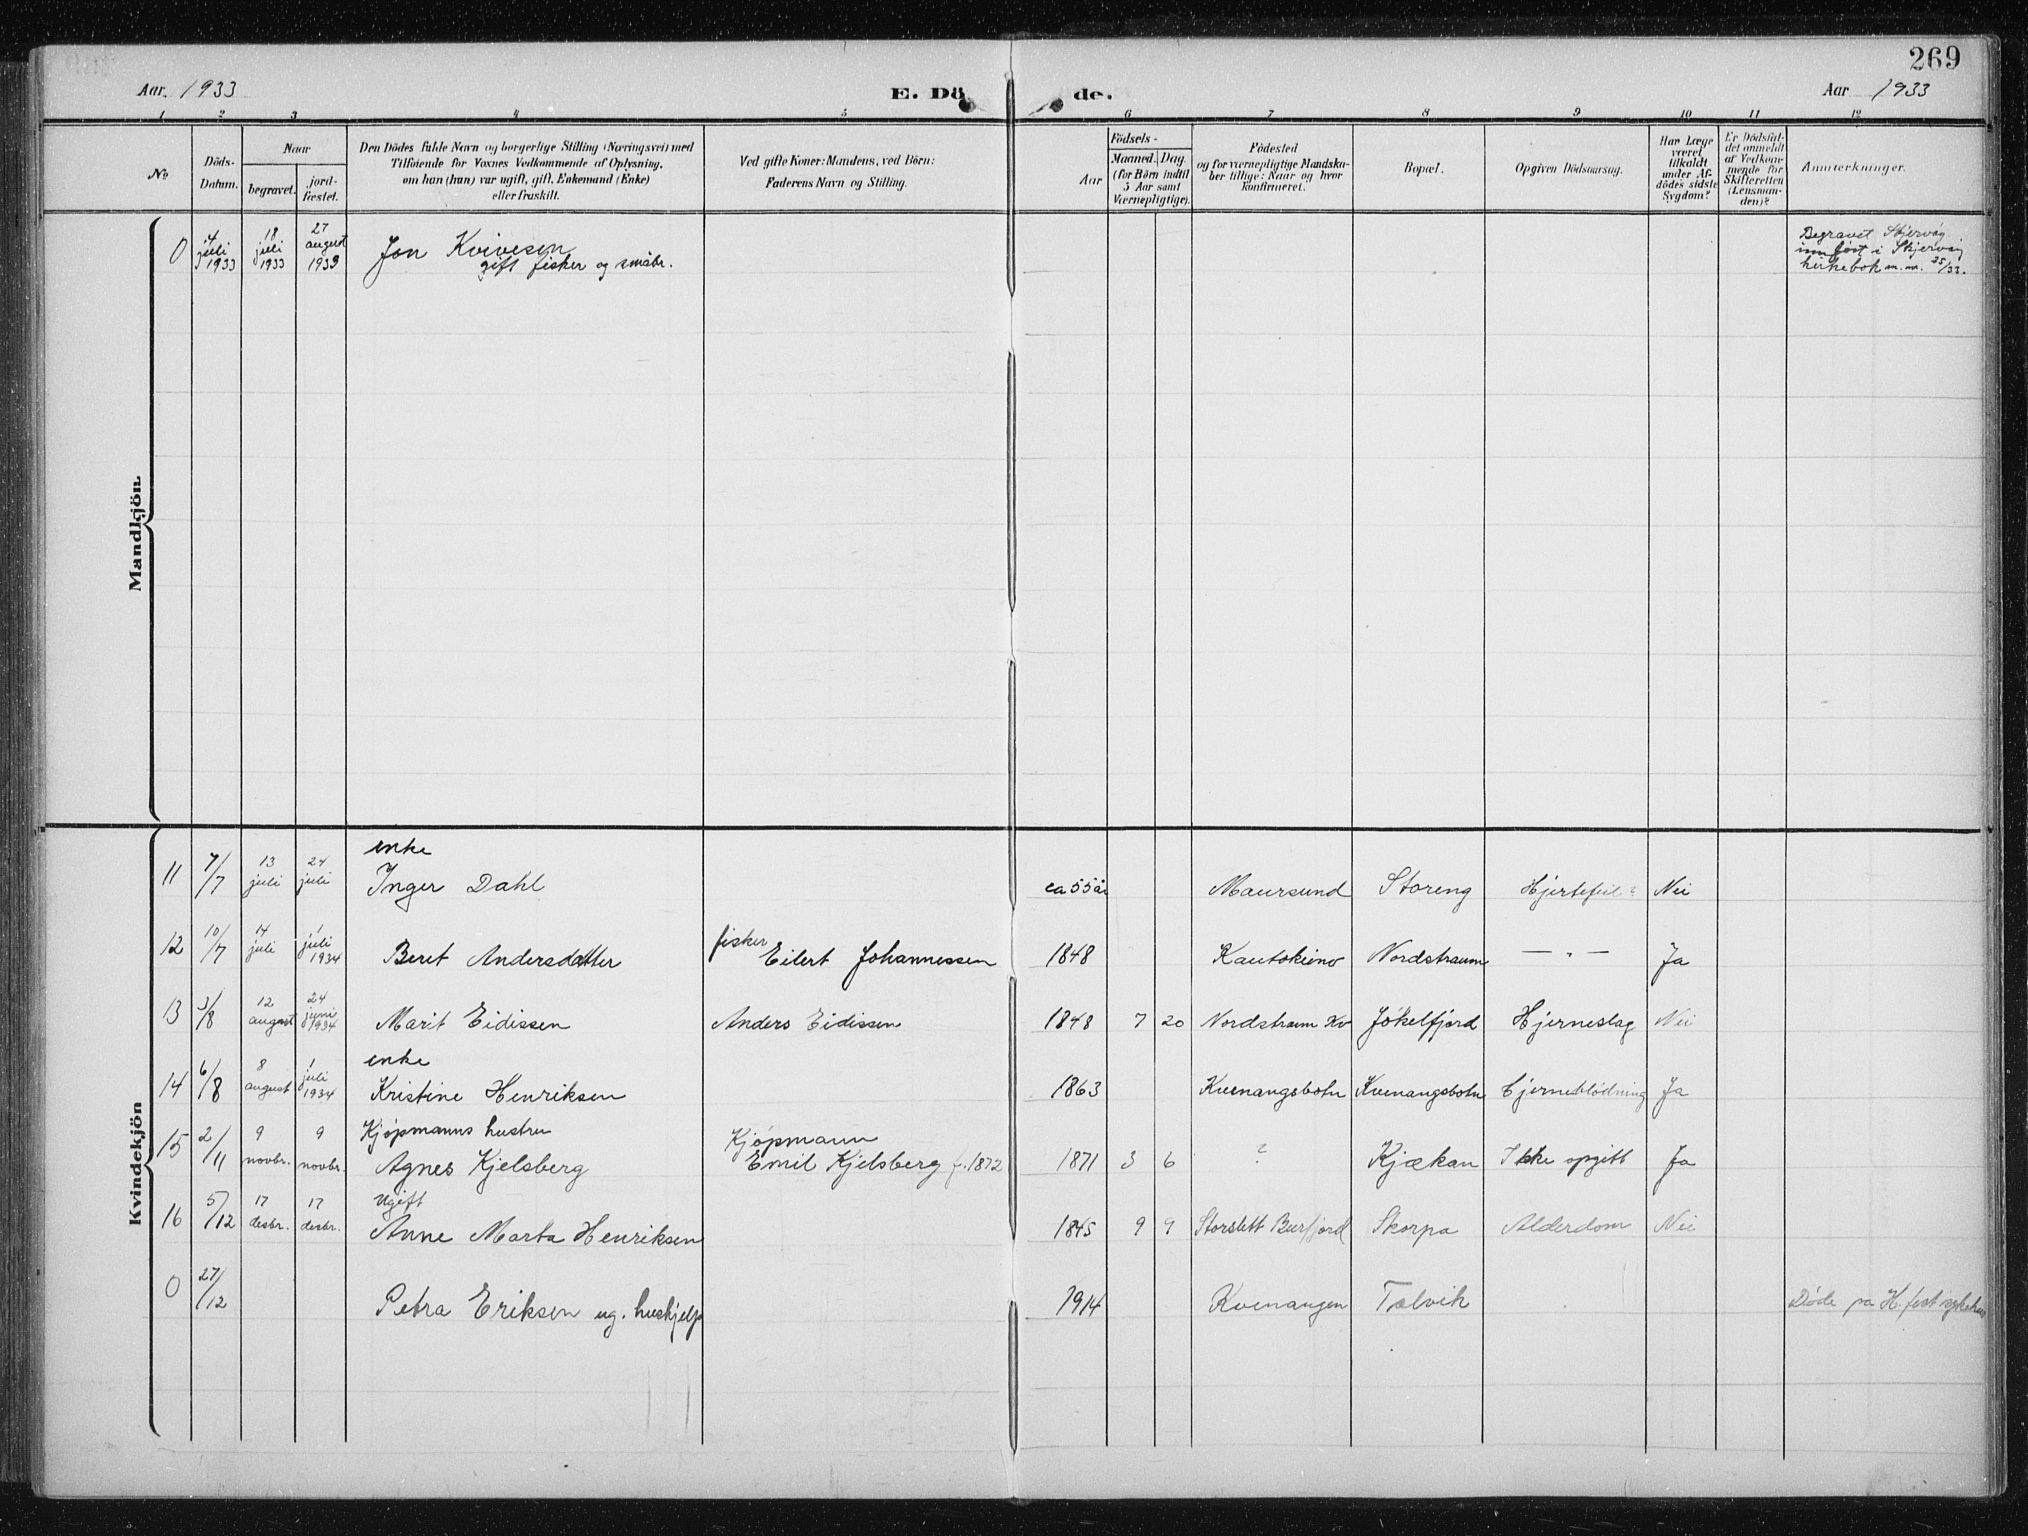 269
Aar. 1933 E. Dö de. Aar 1933
1 2 3 4 5 6 7 8 9 10 11 12
No
Döds-
Datum.
Naar
begravet.
jord-
fæstet.
Den Dödes fulde Navn og borgerlige Stilling (Næringsvei) med
Tilföiende for Voxnes Vedkommende af Oplysning,
om han (hun) var ugift, gift, Enkemand (Enke)
eller fraskilt.
Ved gifte Koner: Mandens, ved Börn:
Faderens Navn og Stilling.
Födsels-
Aar
Maaned. Dag.
(for Börn indtil
5 Aar samt
Værnepligtige).
Födested
og for værnepligtige Mandska-
ber tillige: Naar og hvor
konfirmeret.
Bopæl.
Opgiven Dödsaarsag.
Har Læge
været
tilkaldt
under Af-
dödes sidste
Sygdom?
Er Dödsfal-
det anmeldt
af Vedkom-
mende for
Skifteretten
(Lensman-
den)?
Anmerkninger.
Mandkjön.
0
4
juli
1933
18
juli
1933
27
august
1933
Jon Kvivesen
gift fisker og småbr.
Begravet Skjervøy
innført i Skjervøy
kirkebok m. nr. 25/33.
Kvindekjön
11 7/7 13 juli 24 juli
enke
Inger Dahl
ca 55 år Maursund Storeng Hjertefeil? Nei
12 10/7 14 juli 1 juli 1934
Beret Andersdatter
fisker
Eilert Johannessen
1848 Kautokeino Nordstraum — " — Ja
13 3/8 12 august 24 juni 1934
Marit Eidissen Anders Eidissen
1848 7 20 Nordstraum Kv Jøkelfjord Hjerneslag Nei
14 6/8 8 august 1 juli 1934
enke
Kristine Henriksen
1863 Kvenangsbotn Kvenangsbotn Hjerneblødning Ja
15 2/11 9 novbr. 9 novbr.
Kjøpmanns hustru
Agnes Kjelsberg
Kjøpmann
Emil Kjelsberg f. 1872
1871 3 6 ? Kjækan Ikke opgitt Ja
16 5/12 17 desbr. 17 desbr.
Ugift
Anne Marta Henriksen
1845 9 9 Storslett Burfjord Skorpa Alderdom Nei
0 27/12
Petra Eriksen ug. hushjelp
1914 Kvenangen Talvik Døde på H. fest sykehus